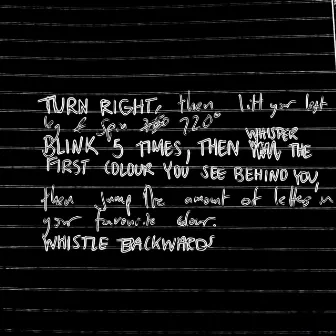 TURN RIGHT, then lift your left
leg & spin 720°
BLINK 5 TIMES, THEN WHISPER THE
FIRST COLOUR YOU SEE BEHIND YOU,
then jump the amount of letters in
your favourite colour.
WHISTLE BACKWARDS